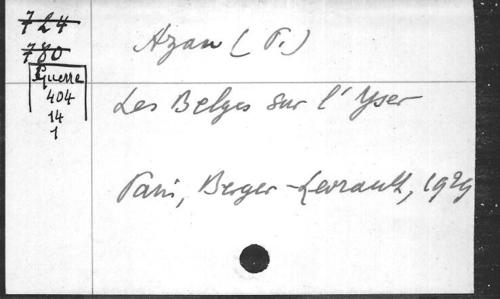 724
780
Guerre
404
14
1
Azan (P.)
Les Belges sur l'Yser
Paris, Berger-Levrault, 1929